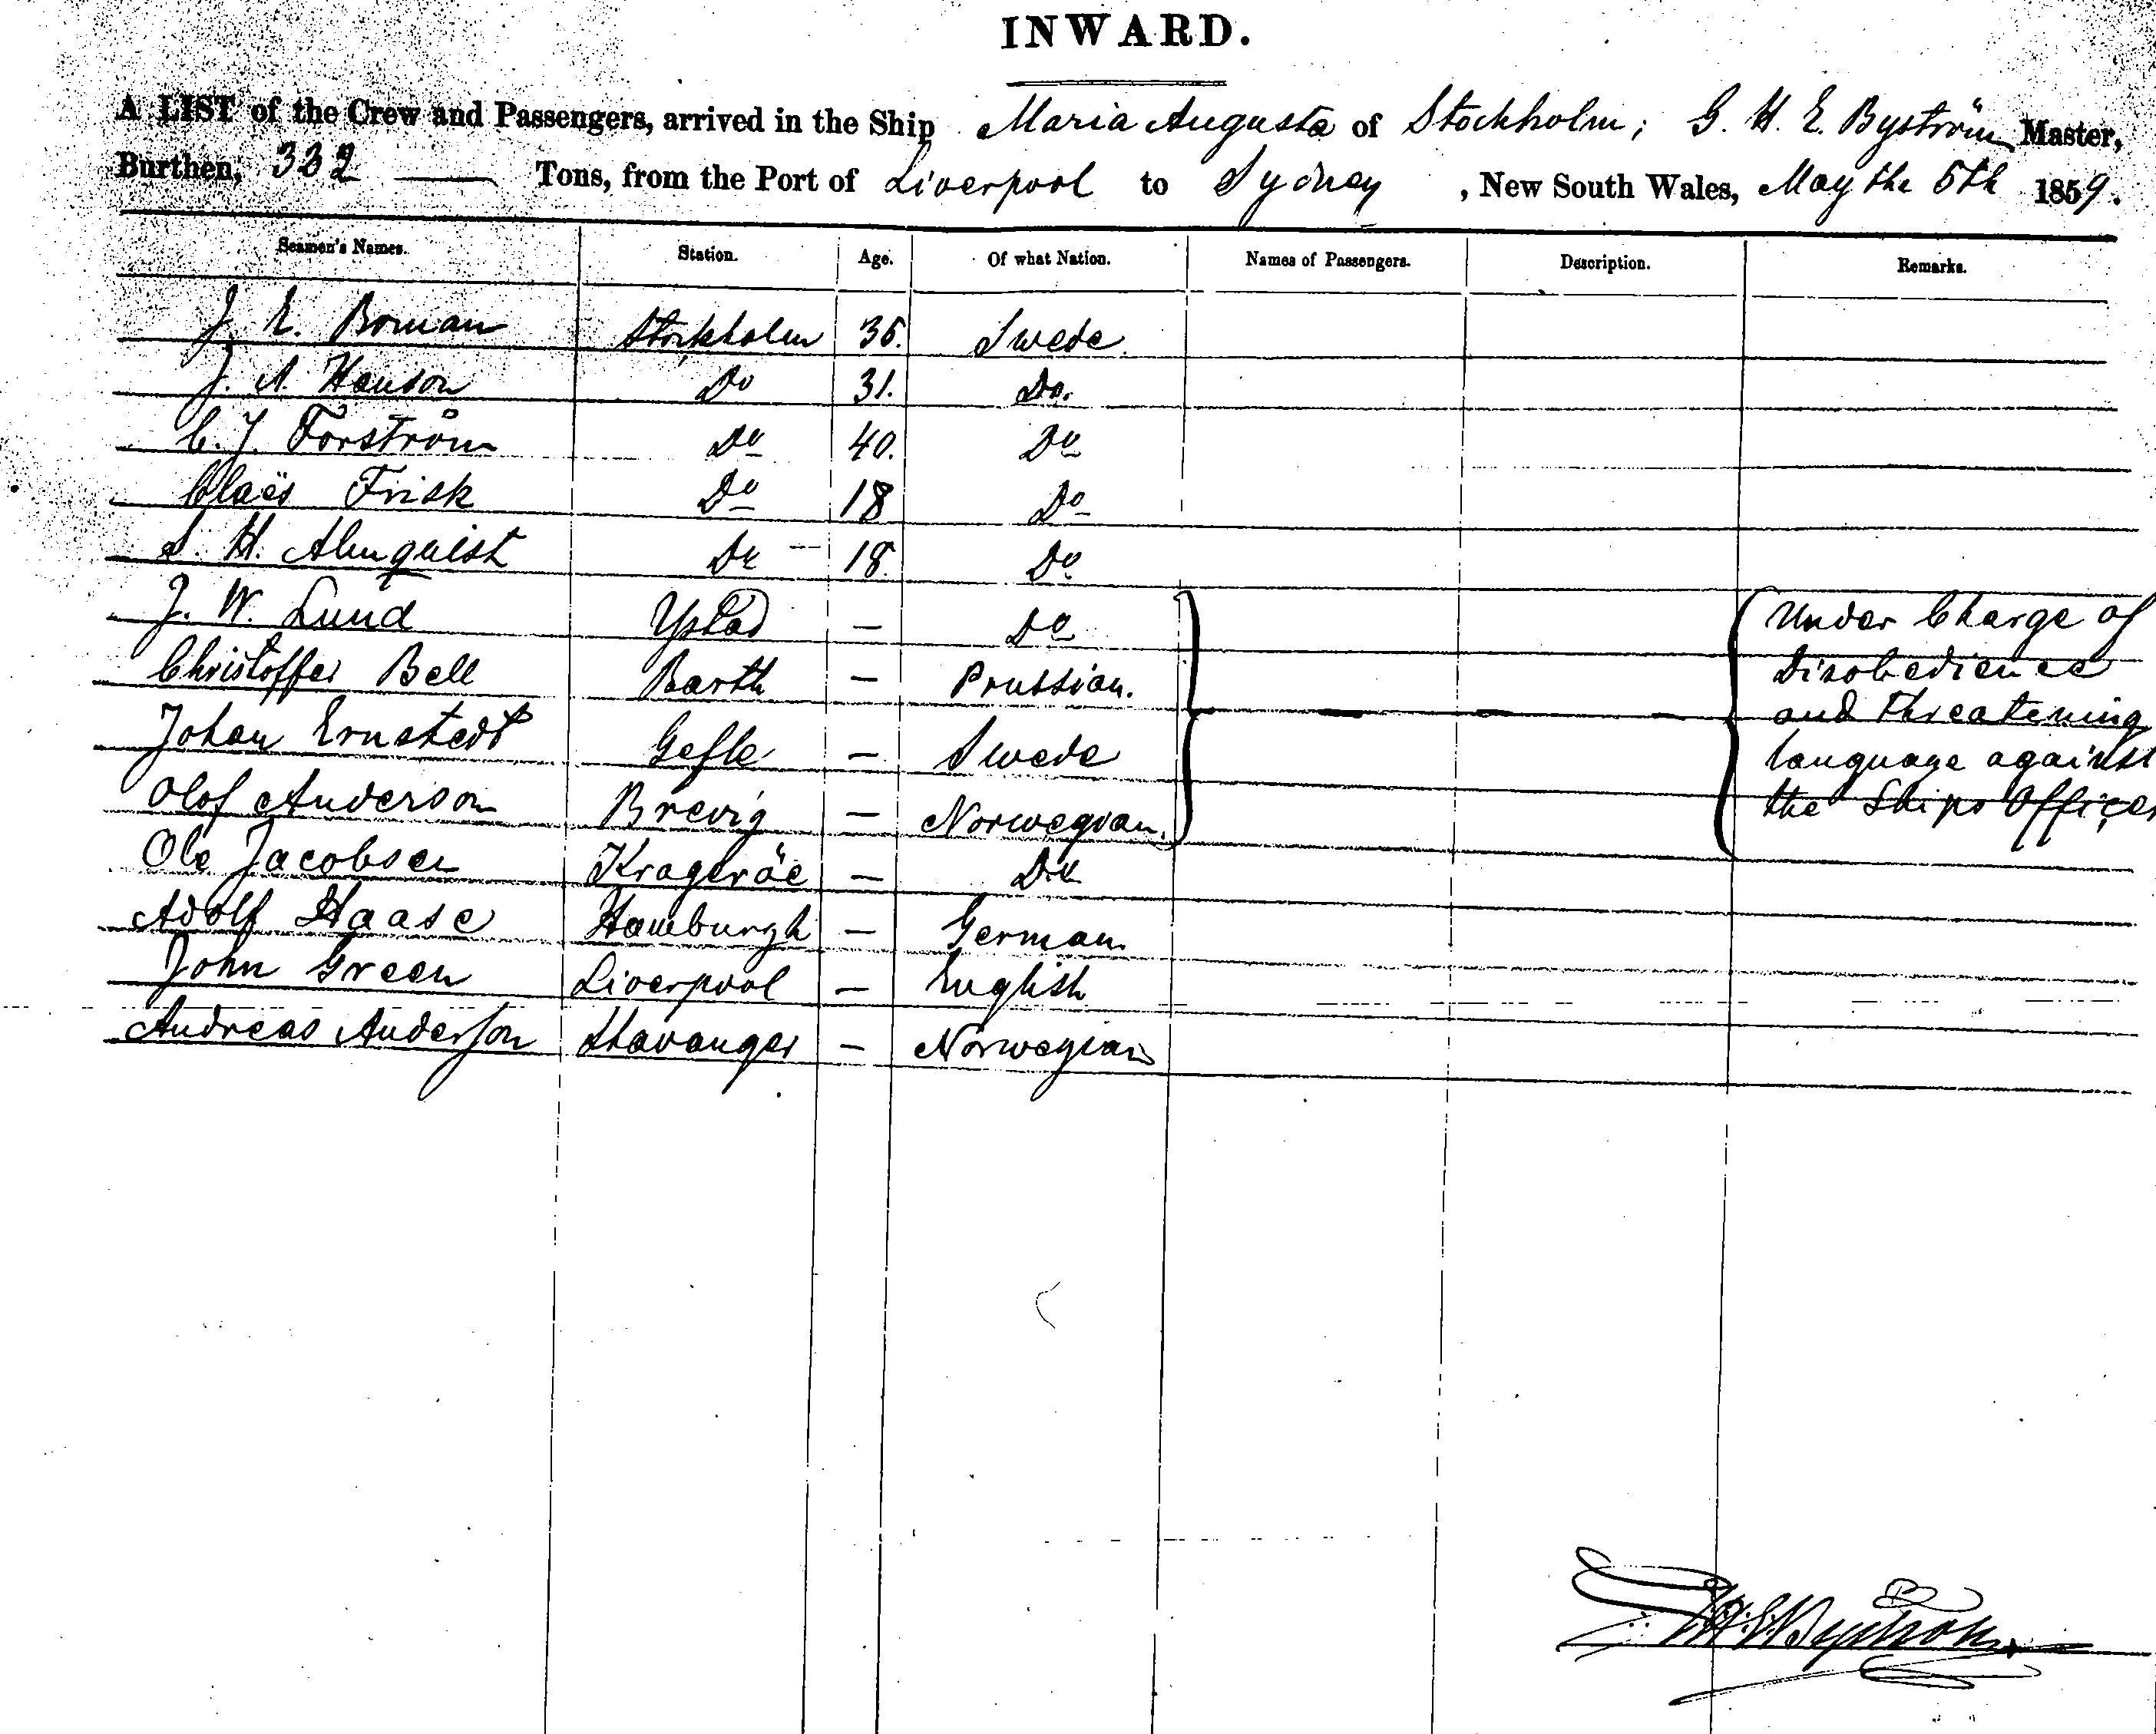 INWARD.
A LIST of the Crew and Passengers, arrived in the Ship Maria Augusta of Stockholm; G. H. E. Byström Master,
Burthen, 332 — Tons, from the Port of Liverpool to Sydney, New South Wales, May the 5th 1859.
Seamen's Names. Station. Age. Of what Nation. Names of Passengers. Description. Remarks.
J. E. Boman Stockholm 36. Swede.
J. A. Hanson Do 31. Do.
C. J. Forström Do 40. Do
Claës Frisk Do 18 Do
S. H. Almquist Do 18 Do
J. W. Lund Ystad — Do Under Charge of
Christoffer Bell Barth — Prussian. Disobedience
Johan Ernstedt Gefle — Swede and threatening
language against
Olof Anderson Brevig — Norwegian. the Ships Officer
Ole Jacobsen Krageröe — Do
Adolf Haase Hamburgh — German
John Green Liverpool — English
Andreas Anderson Stavanger — Norwegian
G. H. E. Byström